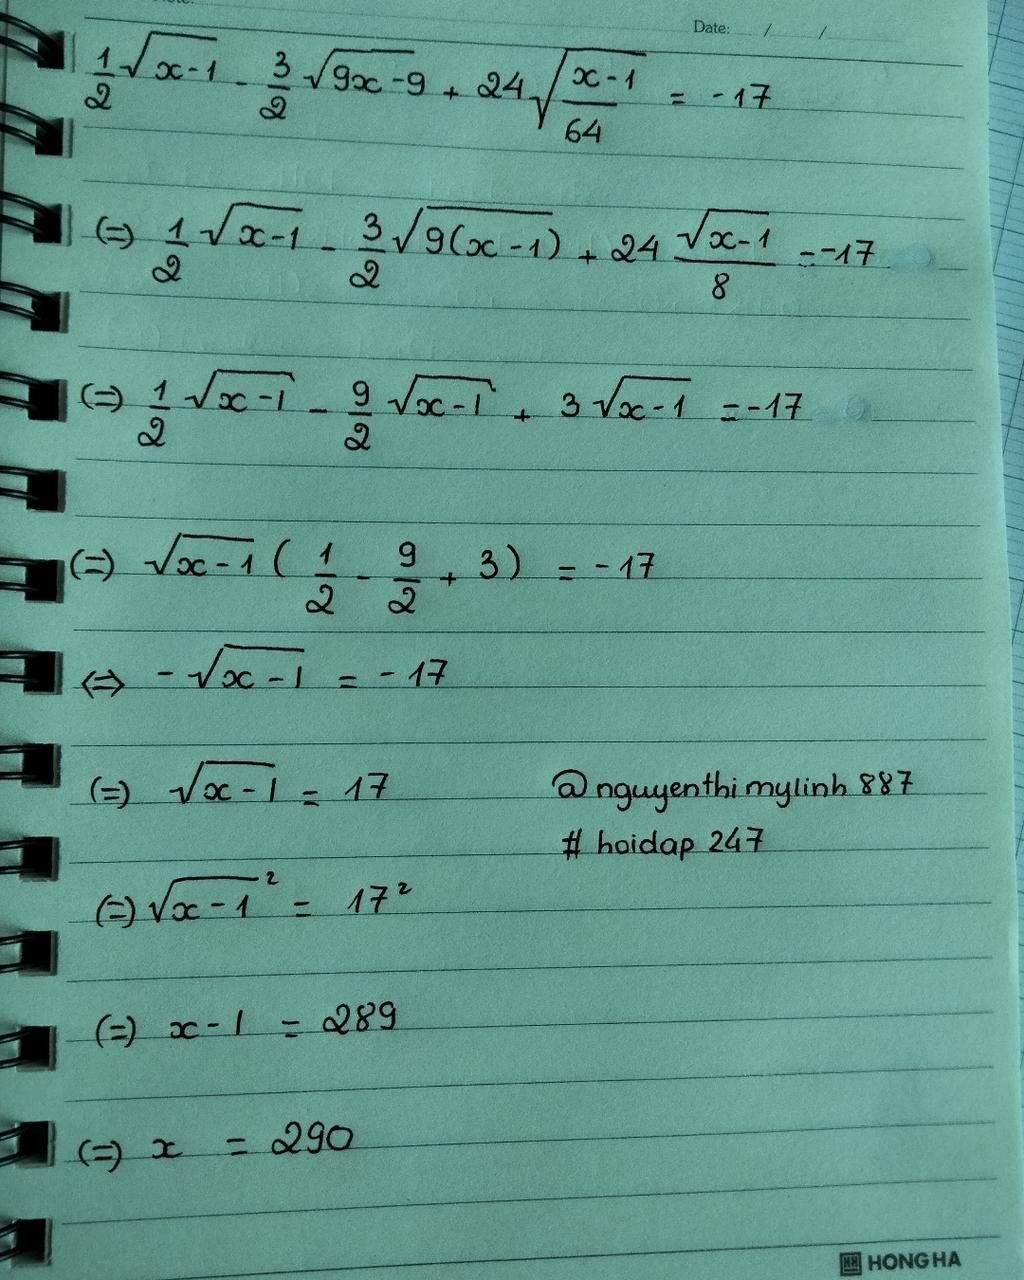 Date: / /
1/2 √(x-1) - 3/2 √(9x-9) + 24 √((x-1)/64) = -17
(=) 1/2 √(x-1) - 3/2 √(9(x-1)) + 24 √(x-1)/8 = -17
(=) 1/2 √(x-1) - 9/2 √(x-1) + 3 √(x-1) = -17
(=) √(x-1) ( 1/2 - 9/2 + 3 ) = -17
⇔ - √(x-1) = -17
(=) √(x-1) = 17
@nguyenthimylinh887
# hoidap 247
(=) √(x-1)² = 17²
(=) x-1 = 289
(=) x = 290
HONG HA